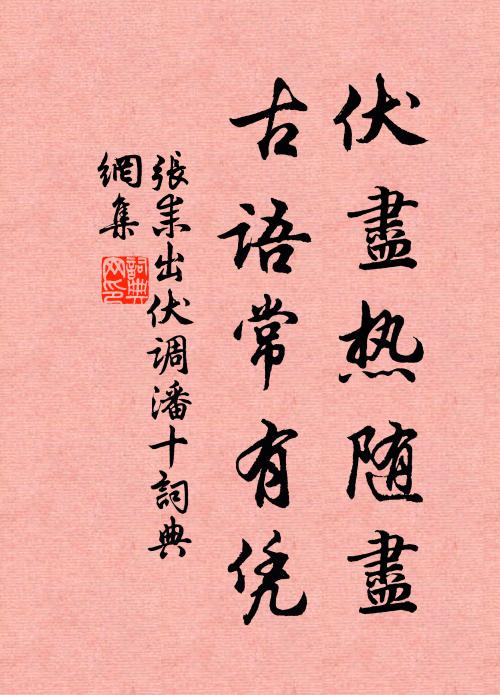 伏盡热随盡
古语常有凭
張耒出伏调潘十詞典
網集
詞典
网印